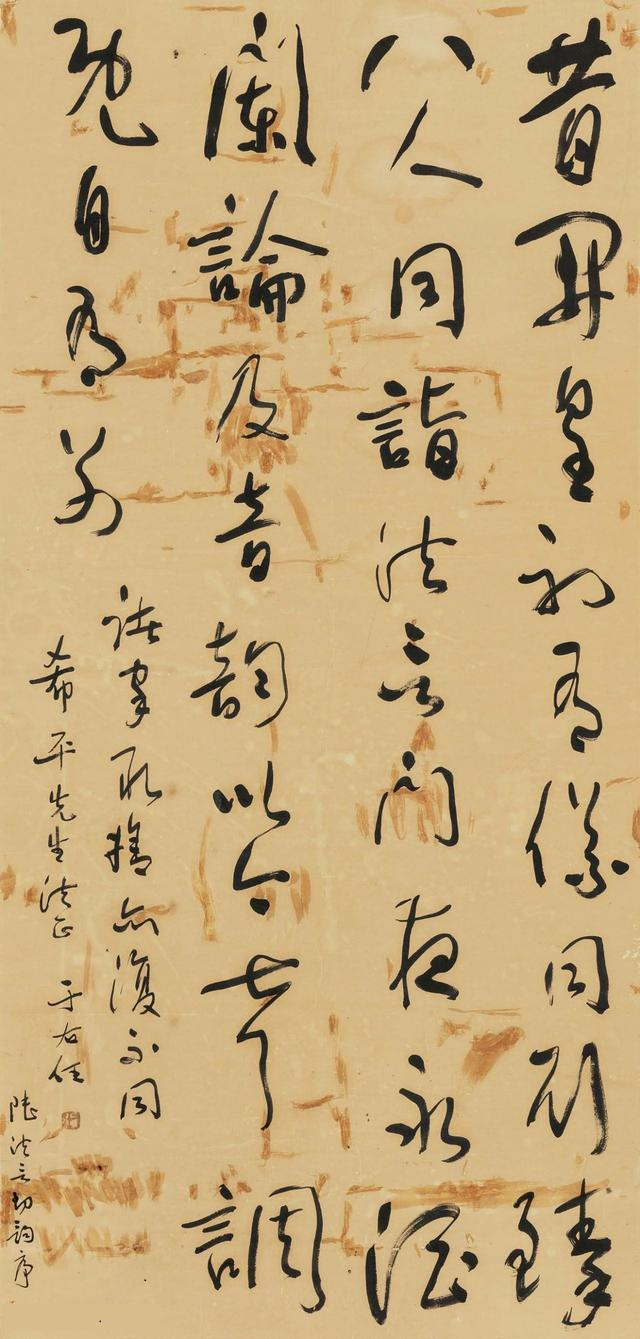 昔開皇初有儀同劉臻
八人同詣法言門夜永酒
闌論及音韻以今聲調
既自有別
諸家取捨亦復不同
希平先生法正 于右任
陸法言切韻序